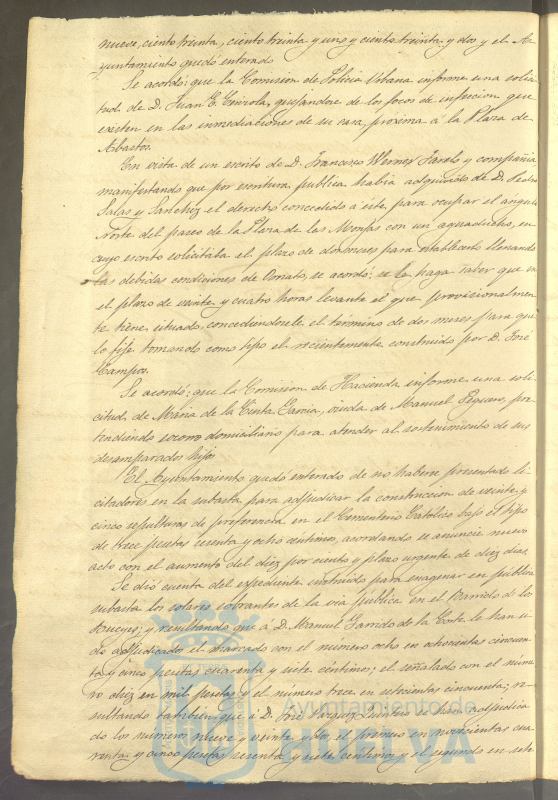 nueve, ciento treinta, ciento treinta y uno y ciento treinta y dos y el A-
yuntamiento quedó enterado.
Se acordó: que la Comision de Policia Urbana informe una solici
tud de D. Juan C. quejandose de los focos de infeccion que
existen en las inmediaciones de su casa, próxima á la Plaza de
Abastos.
En vista de un escrito de D. Francisco Werner y compañia
manifestando que por escritura publica habia adquirido de D. Pedro
Salas y Sanchez el derecho concedido á este para ocupar el angulo
Norte del paseo de la Plaza de las Monjas con un aguaducho, en
cuyo escrito solicitaba el plazo de dos meses para establecerlo llenando
las debidas condiciones de Ornato, se acordó: se le haga saber que en
el plazo de veinte y cuatro horas levante el que provisionalmen
te tiene situado, concediendosele el término de dos meses para que
lo fije tomando como tipo el recientemente construido por D. José
Campos.
Se acordó: que la Comision de Hacienda informe una soli
citud de Maria de la Cinta Garcia, viuda de Manuel pre
tendiendo socorro domiciliario para atender al sostenimiento de sus
desamparados hijos.
El Ayuntamiento quedó enterado de no haberse presentado li
citadores en la subasta para adjudicar la construccion de veinte y
cinco sepulturas de preferencia en el Cementerio Católico bajo el tipo
de trece pesetas sesenta y ocho centimos, acordando se anuncie nuevo
acto con el aumento del diez por ciento y plazo urgente de diez dias.
Se dió cuenta del expediente instruido para enagenar en pública
subasta los solares sobrantes de la via publica en el Barrido de los
y resultando que á D. Manuel Garrido de la Corte le han si
do adjudicado el marcado con el numero ocho en ochocientas cincuen
ta y cinco pesetas cuarenta y siete céntimos; el señalado con el núme
ro diez en mil pesetas y el numero trece en setecientas cincuenta; re
sultando tambien que á D. José Vazquez se han adjudica
do los numeros nueve y veinte y dos, el primero en novecientas cua
renta y cinco pesetas sesenta y siete centimos y el segundo en sete
Ayuntamiento de
HUELVA